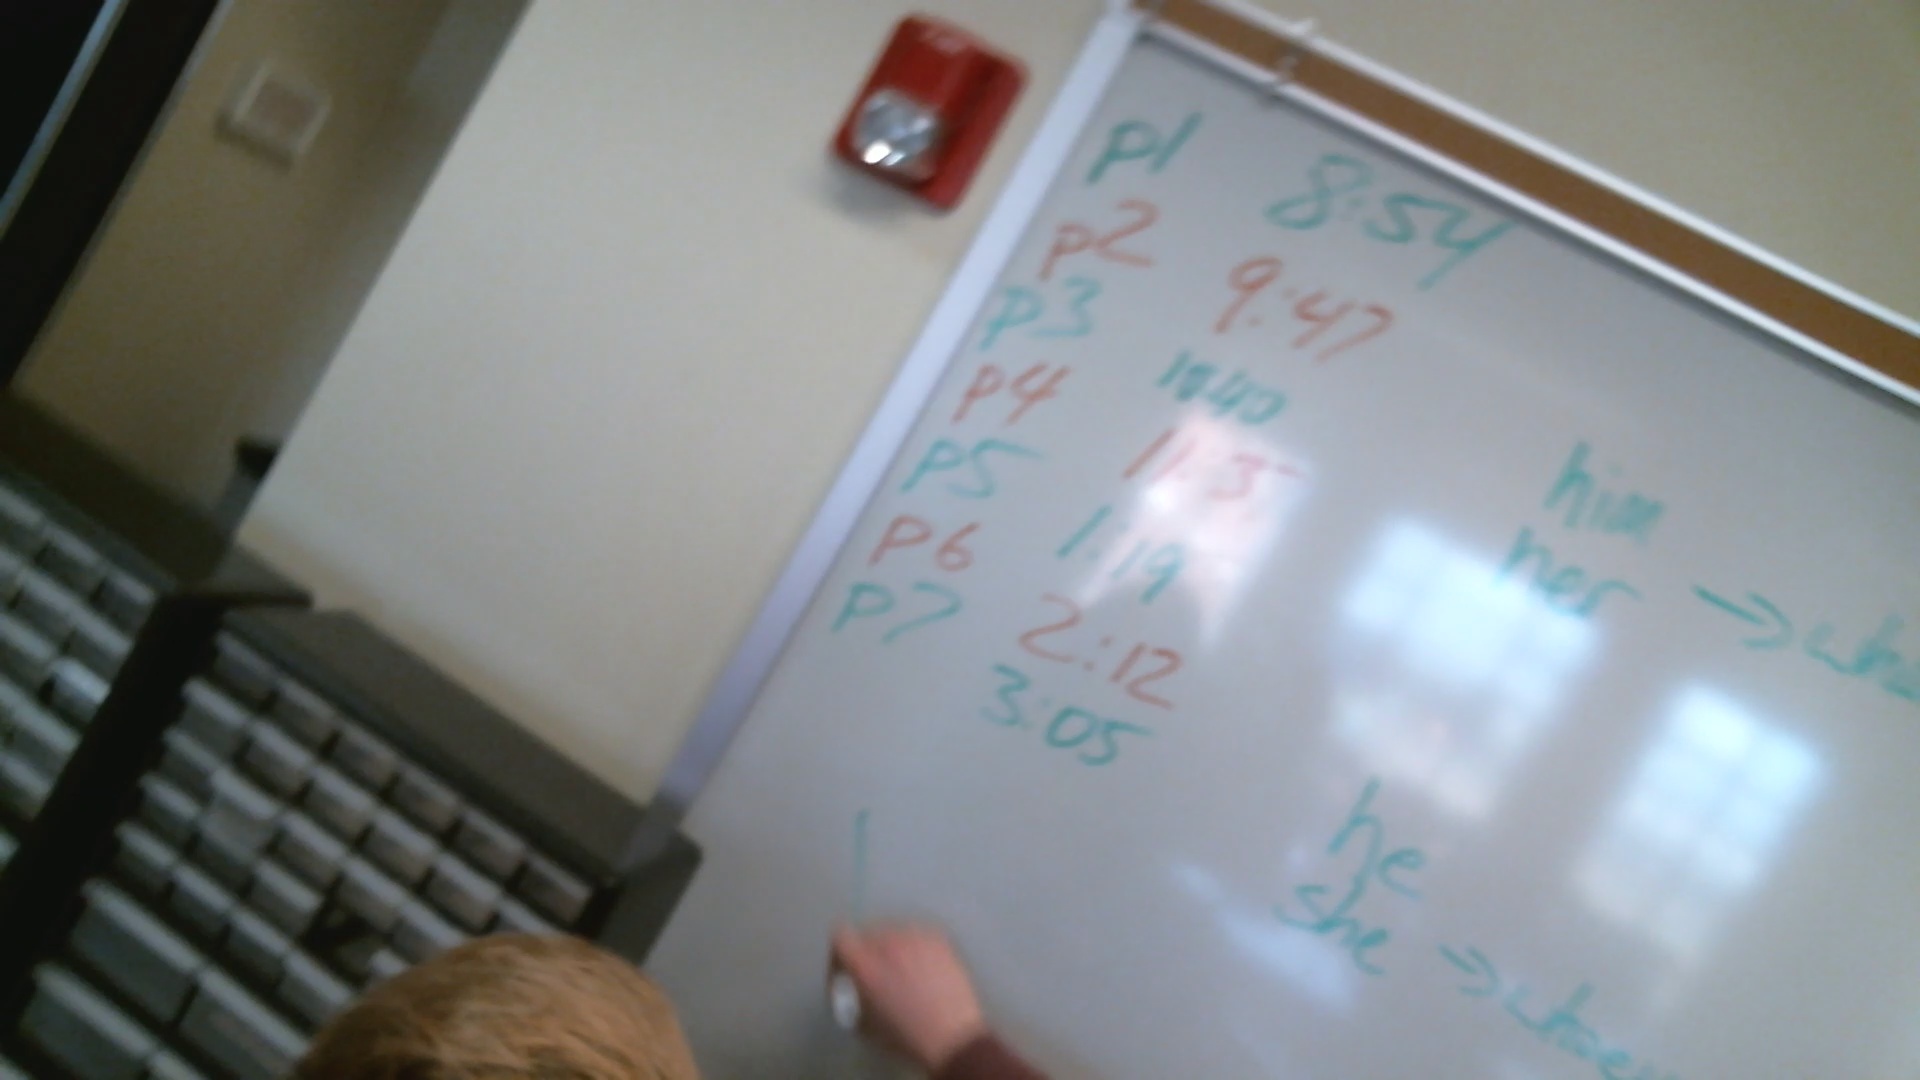 p1 8:54
p2 9:47
p3 10:40
p4
p5 1:19
p6 2:12
p7 3:05
him
her →
he
she →